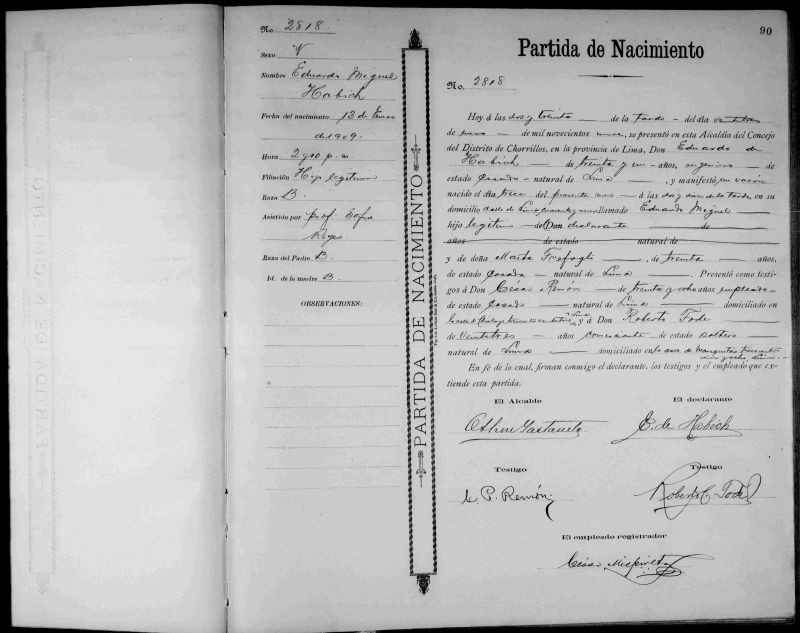 No. 2818
Sexo V
Nombre Eduardo Miguel
Habich
Fecha del nacimiento 13 de Enero
de 1909.
Hora 2 y 10 p. m.
Filiación Hijo legítimo
Raza B.
Asistido por prof. Sofia
Reyes
Raza del Padre B.
Id. de la madre B.
OBSERVACIONES:
PARTIDA DE NACIMIENTO
90
Partida de Nacimiento
No. 2818
Hoy á las dos y treinta de la tarde del día ventitres
de de mil novecientos se presentó en esta Alcaldía del Concejo
del Distrito de Chorrillos, en la provincia de Lima, Don Eduardo de
Habich de treinta y un años, ingeniero de
estado casado natural de Lima y manifestó, un varón
nacido el día trece del presente mes á las dos y diez de la tarde, en su
domicilio calle de llamado Eduardo Miguel
hijo legítimo de Don declarante de
años de estado natural de
y de doña Marta de treinta años,
de estado casada natural de Lima Presentó como testi-
gos á Don César Remón de treinta y ocho años empleado
de estado casado natural de Lima domiciliado en
la calle de y á Don Roberto
de ventitres años comerciante de estado soltero
natural de Lima domiciliado en la calle de
En fé de lo cual, firman conmigo el declarante, los testigos y el empleado que ex-
tiende esta partida.
El Alcalde
El declarante
E. de Habich
Testigo
Testigo
C. P. Remón
Roberto C.
El empleado registrador
César